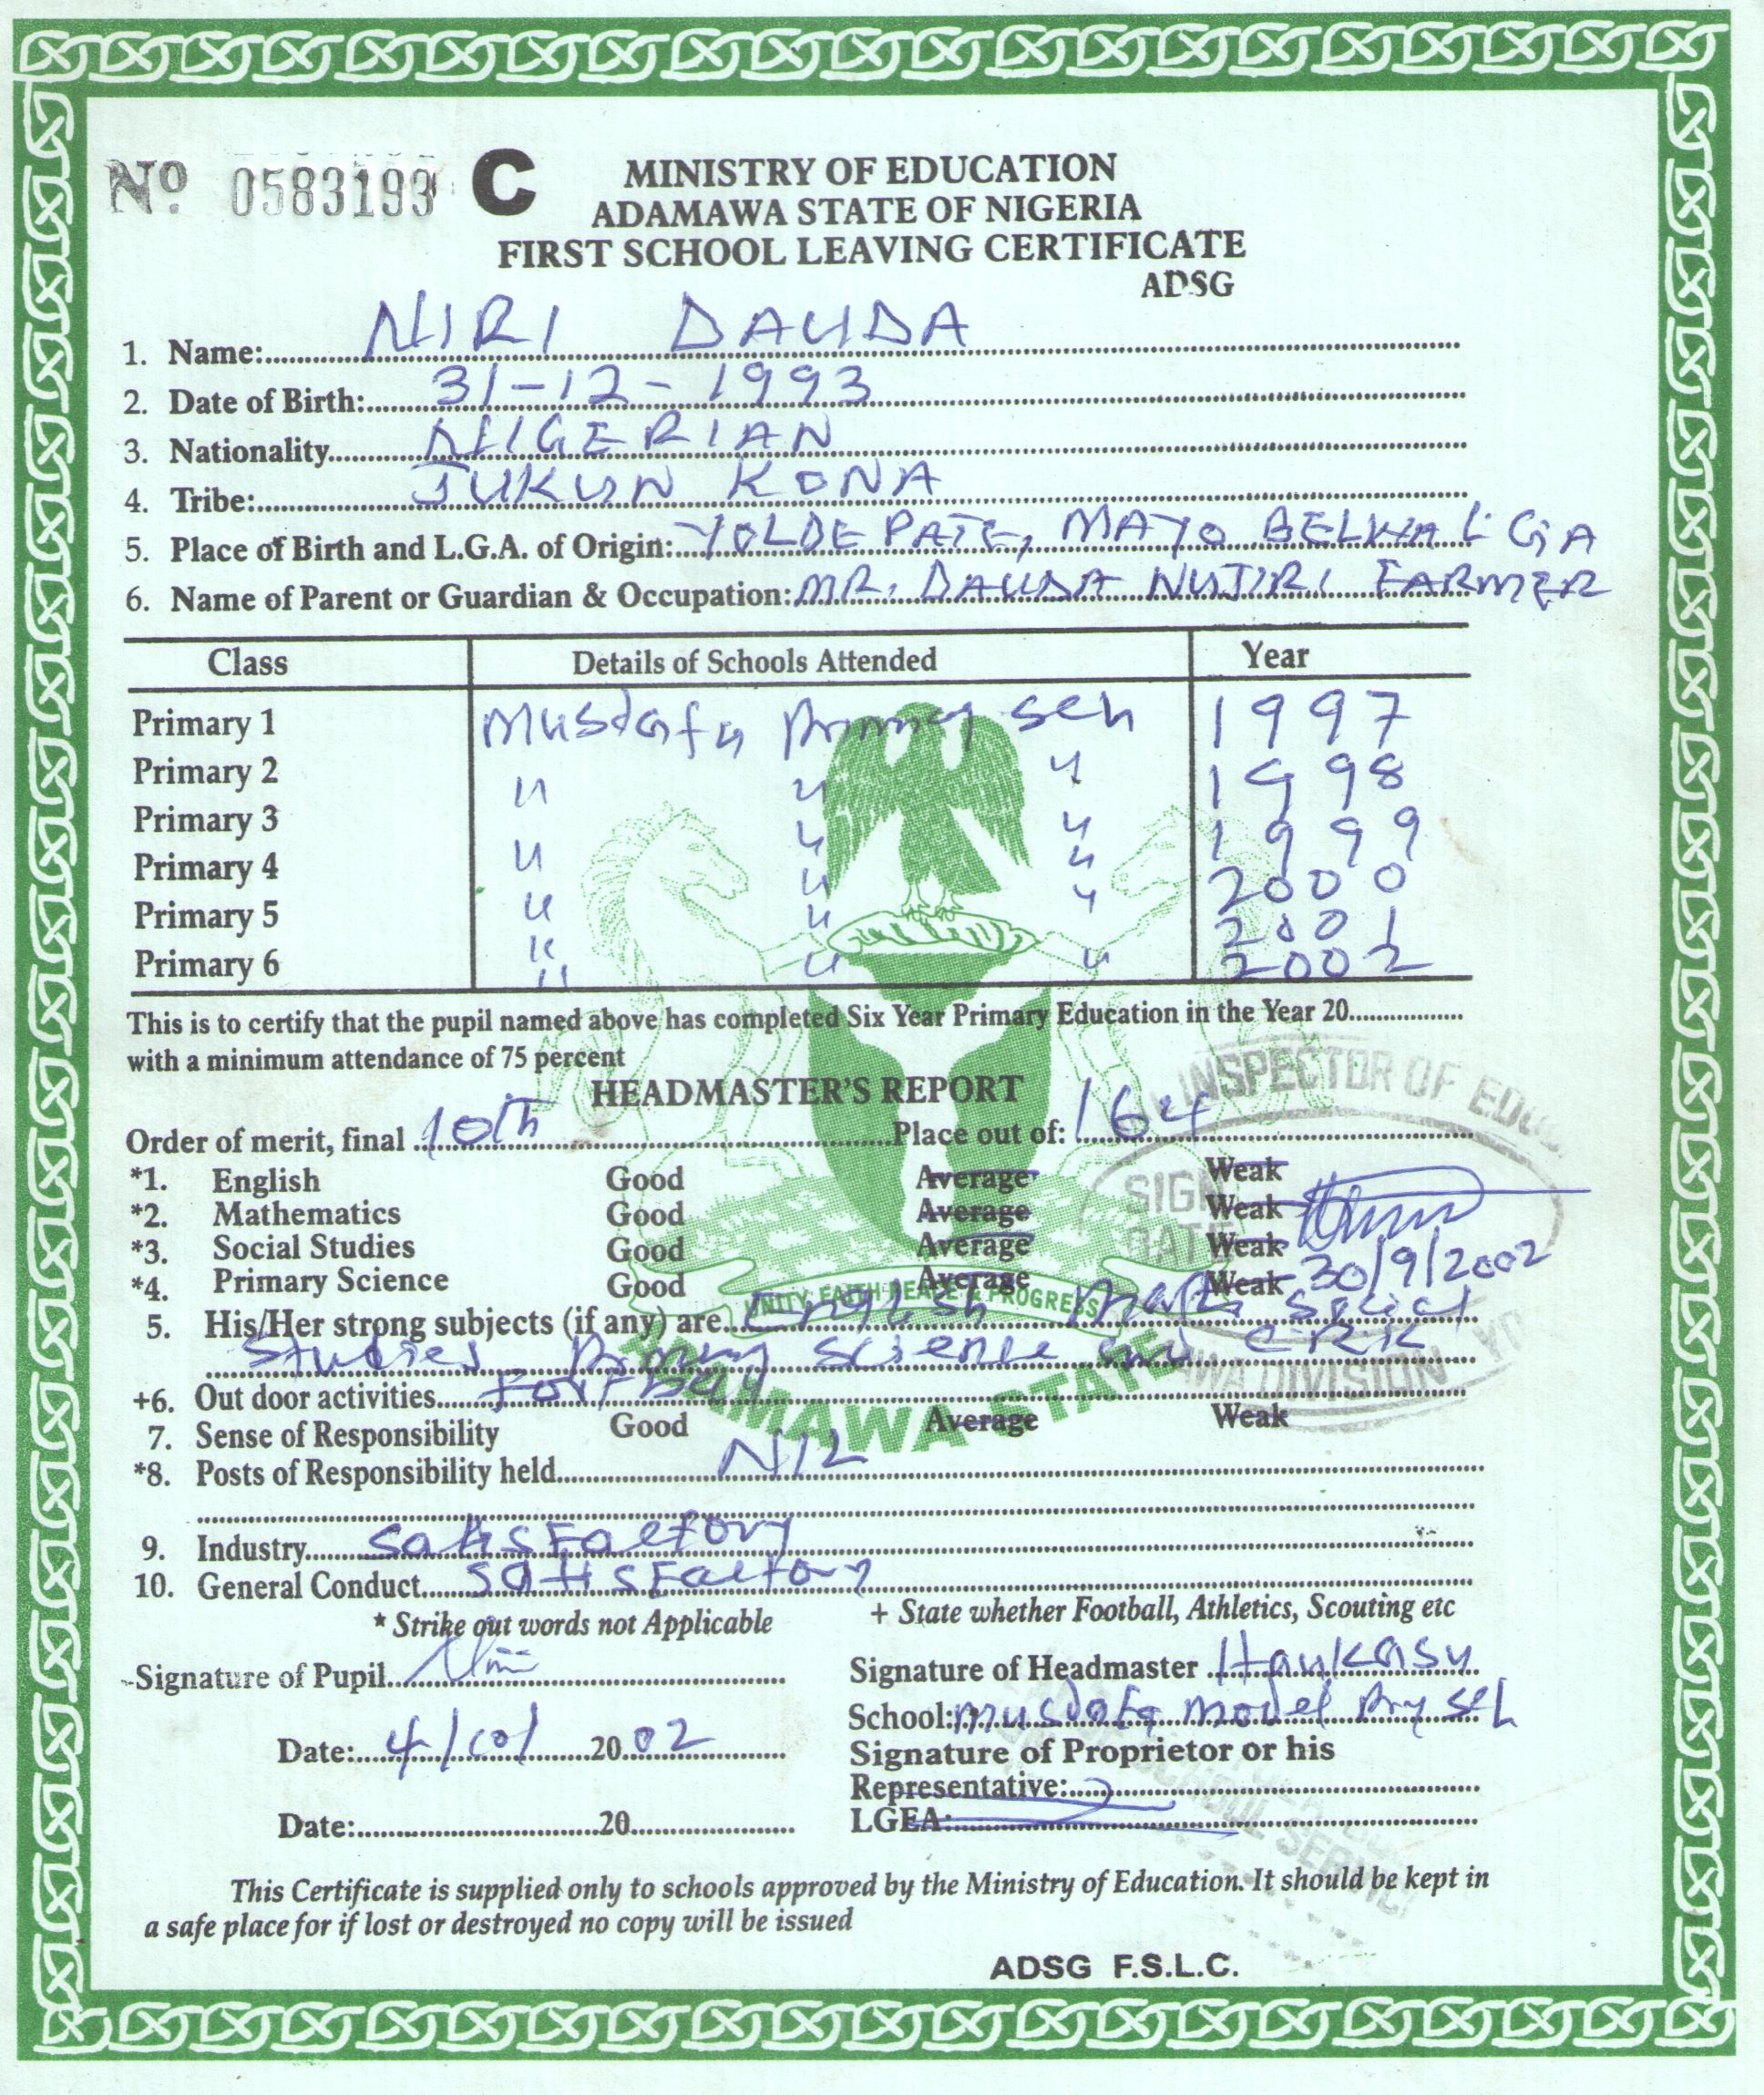 No 0583193 C
MINISTRY OF EDUCATION
ADAMAWA STATE OF NIGERIA
FIRST SCHOOL LEAVING CERTIFICATE
ADSG
1. Name: NIRI DAUDA
2. Date of Birth: 31-12-1993
3. Nationality NIGERIAN
4. Tribe: JUKUN KONA
5. Place of Birth and L.G.A. of Origin: YOLDE PATE, MAYO BELWA L GA
6. Name of Parent or Guardian & Occupation: MR. DAUDA NUJIRI FARMER
Class Details of Schools Attended Year
Primary 1 Mustafa Primary Sch 1997
Primary 2 " " " 1998
Primary 3 " " " 1999
Primary 4 " " " 2000
Primary 5 " " " 2001
Primary 6 " " " 2002
This is to certify that the pupil named above has completed Six Year Primary Education in the Year 20
with a minimum attendance of 75 percent
HEADMASTER'S REPORT
Order of merit, final 10th Place out of: 164
*1. English Good Average Weak
*2. Mathematics Good Average Weak
*3. Social Studies Good Average Weak
*4. Primary Science Good Average Weak 30/9/2002
INSPECTOR OF
SIGN
DATE
DIVISION
UNITY, FAITH PEACE & PROGRESS
5. His/Her strong subjects (if any) are English Maths Social
Studies Primary Science and CRK
+6. Out door activities Football
ADAMAWA STATE
7. Sense of Responsibility Good Average Weak
*8. Posts of Responsibility held NIL
9. Industry Satisfactory
10. General Conduct Satisfactory
* Strike out words not Applicable + State whether Football, Athletics, Scouting etc
Signature of Pupil Signature of Headmaster Haukasu
School: Mustafa Model Pry Sch
Date: 4/10/ 2002 Signature of Proprietor or his
Representative:
Date: 20 LGEA:
This Certificate is supplied only to schools approved by the Ministry of Education. It should be kept in
a safe place for if lost or destroyed no copy will be issued
ADSG F.S.L.C.